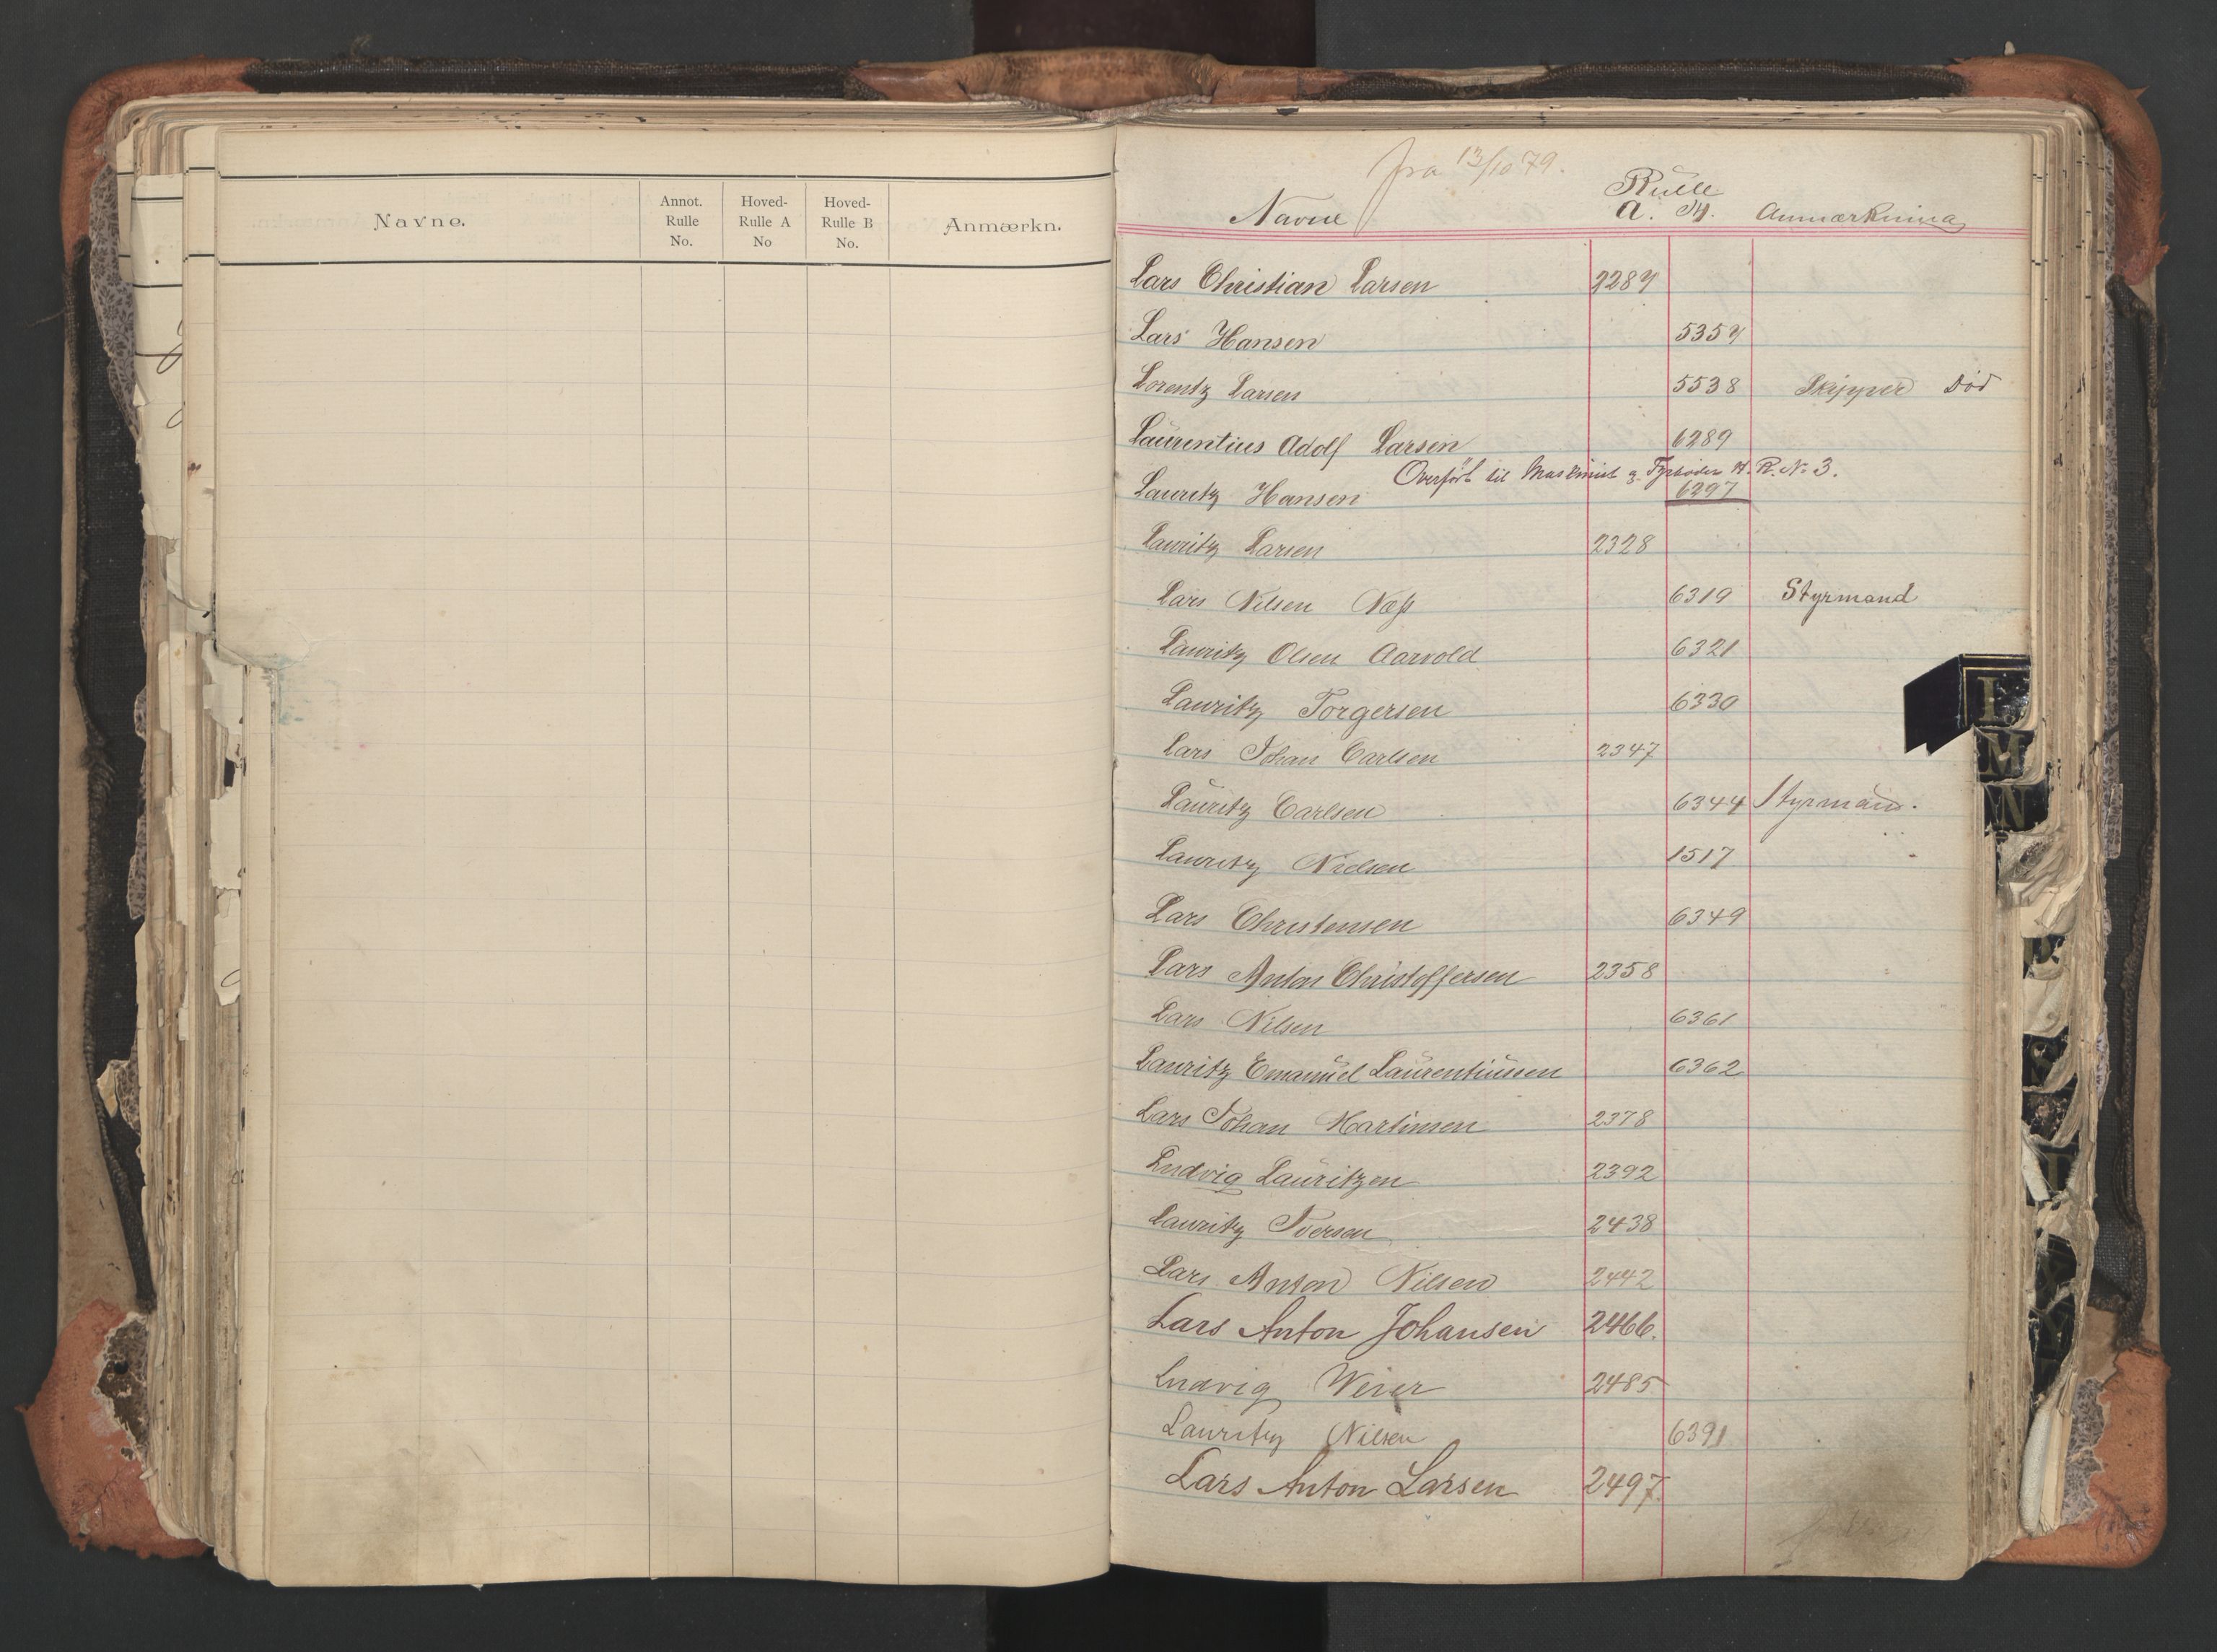 Navne.
Annot. Rulle No.
Hoved- Rulle A No
Hoved- Rulle B No.
Anmærkn.
fra 13/10 79.
Rulle
Navne a. H. Anmærkning
Lars Christian Larsen 2287
Lars Hansen 5357
Lorentz Larsen 5538 Skipper Död
Laurentius Adolf Larsen 6289
Overfört til Maskinist & Fyrböder H. R. No 3.
Lauritz Hansen 6297
Lauritz Larsen 2328
Lars Nilsen Næss 6319 Styrmand
Lauritz Olsen Aarvold 6321
Lauritz Torgersen 6330
Lars Johan Carlsen 2347
Lauritz Carlsen 6344 Styrmand.
Lauritz Nielsen 1517
Lars Christensen 6349
Lars Anton Christoffersen 2358
Lars Nilsen 6361
Lauritz Emanuel Laurentiussen 6362
Lars Johan Martinsen 2378
Ludvig Lauritzen 2392
Lauritz Iversen 2438
Lars Anton Nilsen 2442
Lars Anton Johansen 2466.
Ludvig 2485
Lauritz Nilsen 6391
Lars Anton Larsen 2497.
L
M
N